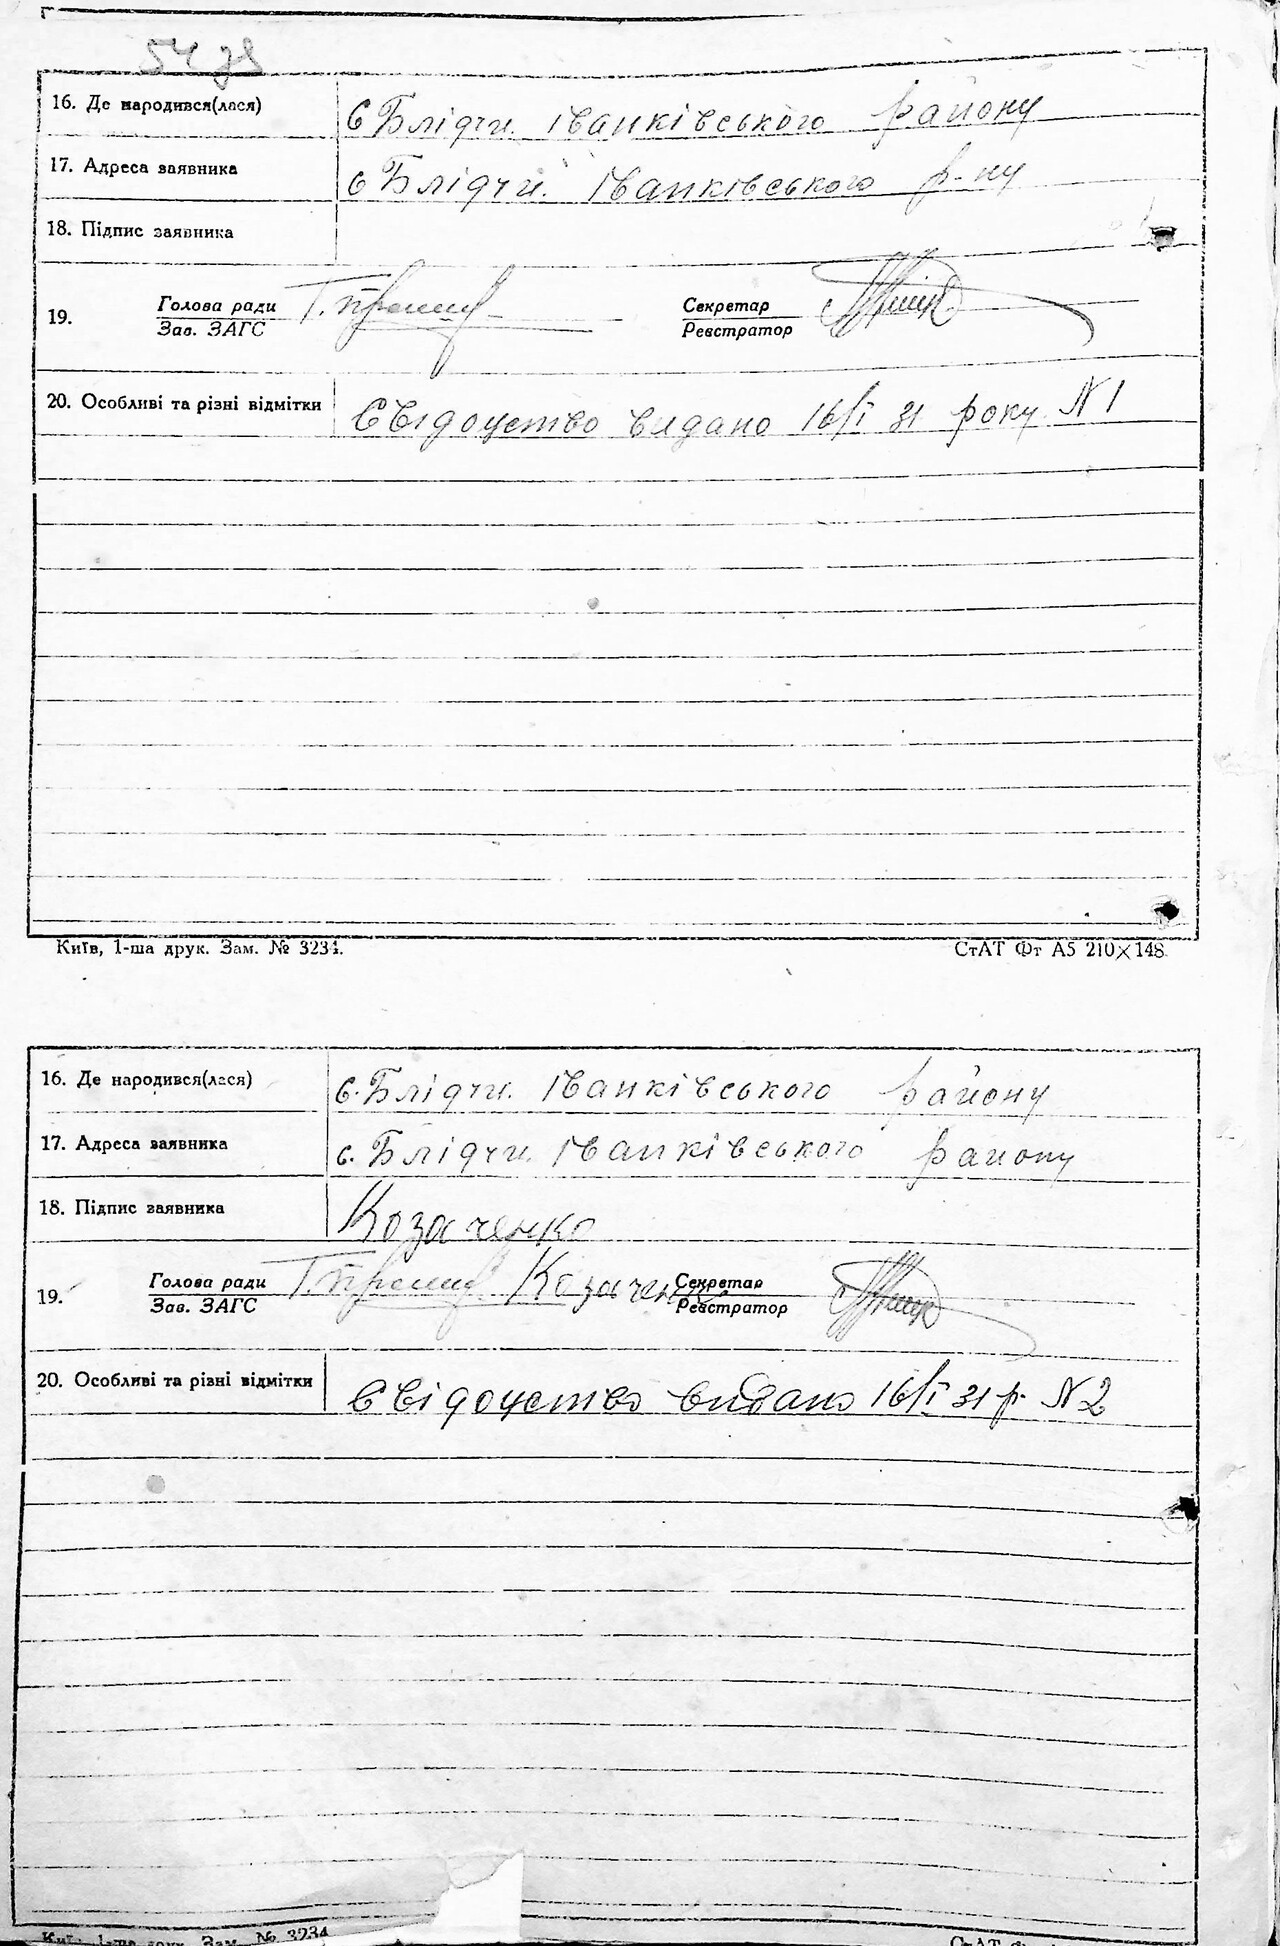 54 зв
16. Де народився(лася) с Блідчи. Іванківського району
17. Адреса заявника с Блідчи. Іванківського р-ну
18. Підпис заявника
Голова ради Секретар
19. Зав. ЗАГС Реєстратор
20. Особливі та різні відмітки Свідоцтво видано 16/I 31 року N 1
Київ, 1-ша друк. Зам. № 3234. СтАТ Фт А5 210×148.
16. Де народився(лася) с. Блідчи. Іванківського району
17. Адреса заявника с. Блідчи. Іванківського району
18. Підпис заявника Козаченко
Голова ради Козаченко Секретар
19. Зав. ЗАГС Реєстратор
20. Особливі та різні відмітки Свідоцтво видано 16/I 31 р. N 2
Київ, 1-ша друк. Зам. № 3234